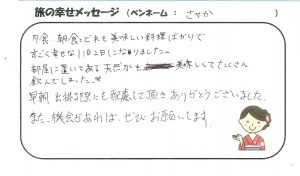 旅の幸せメッセージ (ペンネーム : さやか )
夕食・朝食、どれも美味しい料理ばかりで
すごく幸せな1泊2日になりました。
部屋に置いてある天然水も 美味しくてたくさん
飲んでしまった。
早朝出掛る際にも配慮して頂きありがとうございました。
また、機会があれば、ぜひお願いします。